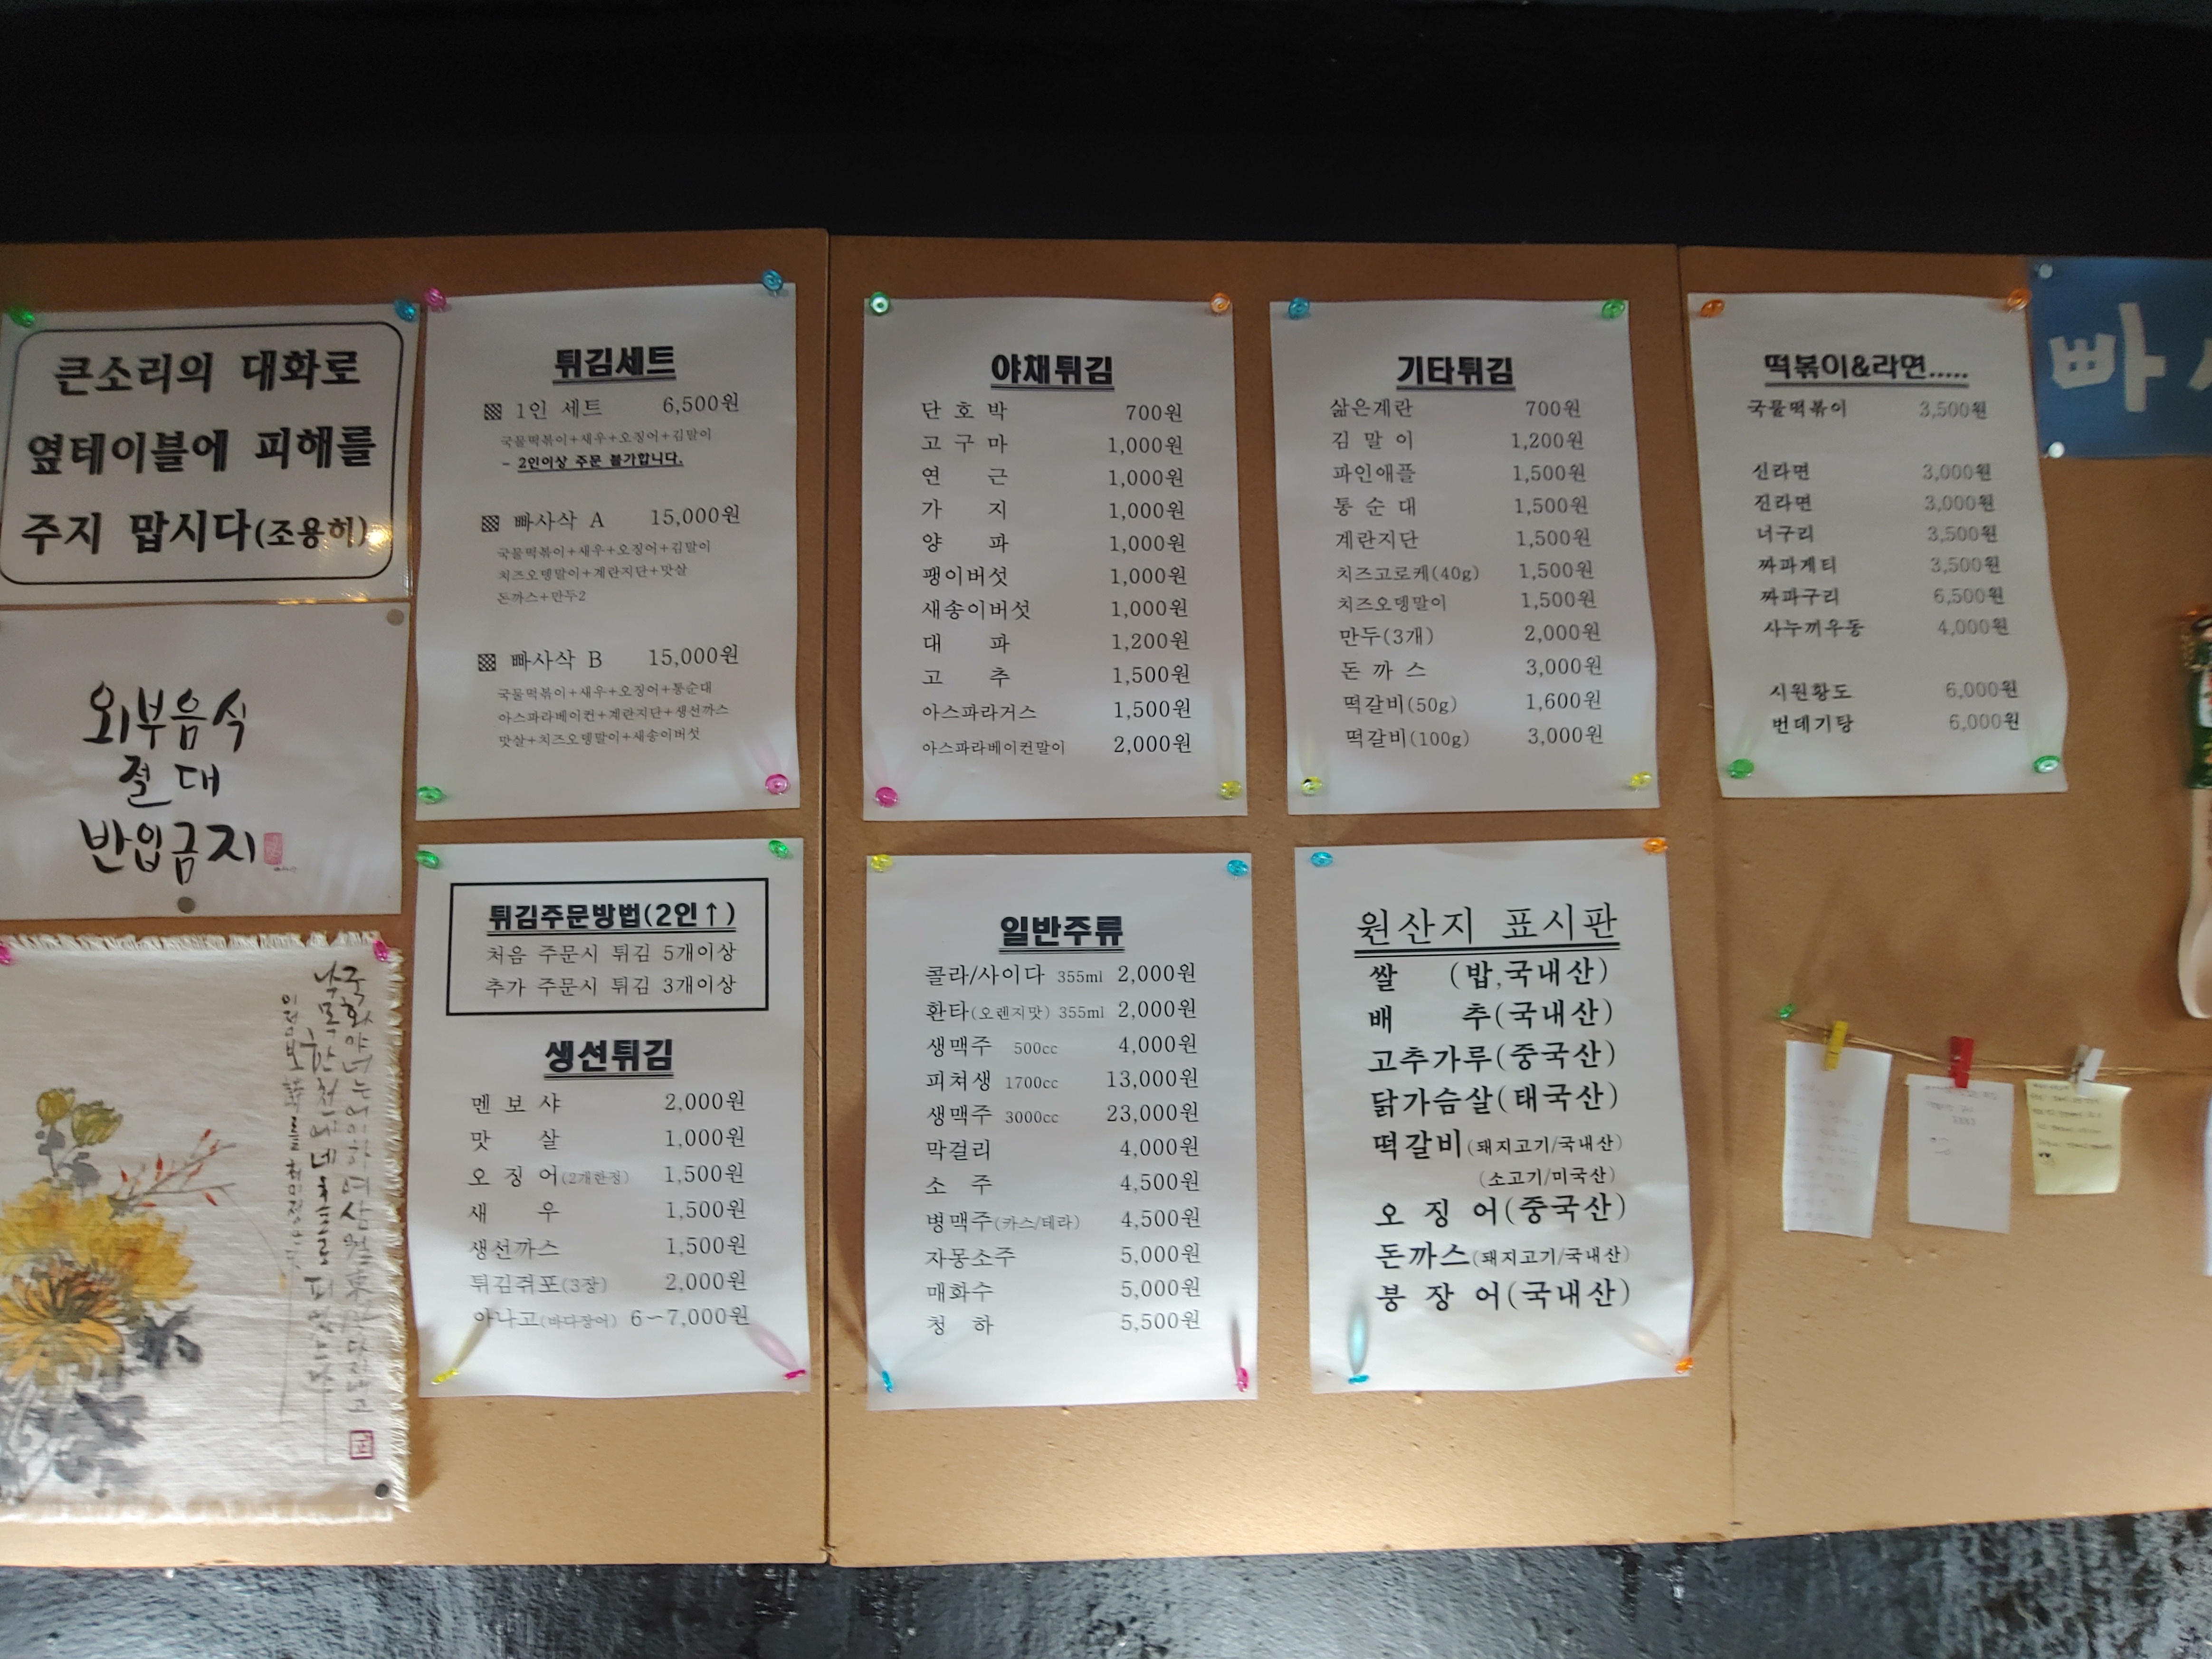 큰소리의 대화로
옆테이블에 피해를
주지 맙시다(조용히)
외부음식
절대
반입금지
튀김세트
▩ 1인 세트 6,500원
국물떡볶이+새우+오징어+김말이
- 2인이상 주문 불가합니다.
▩ 빠사삭 A 15,000원
국물떡볶이+새우+오징어+김말이
치즈오뎅말이+계란지단+맛살
돈까스+만두2
▩ 빠사삭 B 15,000원
국물떡볶이+새우+오징어+통순대
아스파라베이컨+계란지단+생선까스
맛살+치즈오뎅말이+새송이버섯
튀김주문방법(2인↑)
처음 주문시 튀김 5개이상
추가 주문시 튀김 3개이상
생선튀김
멘보샤 2,000원
맛살 1,000원
오징어(2개한정) 1,500원
새우 1,500원
생선까스 1,500원
튀김쥐포(3장) 2,000원
아나고(바다장어) 6~7,000원
야채튀김
단호박 700원
고구마 1,000원
연근 1,000원
가지 1,000원
양파 1,000원
팽이버섯 1,000원
새송이버섯 1,000원
대파 1,200원
고추 1,500원
아스파라거스 1,500원
아스파라베이컨말이 2,000원
일반주류
콜라/사이다 355ml 2,000원
환타(오렌지맛) 355ml 2,000원
생맥주 500cc 4,000원
피쳐생 1700cc 13,000원
생맥주 3000cc 23,000원
막걸리 4,000원
소주 4,500원
병맥주(카스/테라) 4,500원
자몽소주 5,000원
매화수 5,000원
청하 5,500원
기타튀김
삶은계란 700원
김말이 1,200원
파인애플 1,500원
통순대 1,500원
계란지단 1,500원
치즈고로케(40g) 1,500원
치즈오뎅말이 1,500원
만두(3개) 2,000원
돈까스 3,000원
떡갈비(50g) 1,600원
떡갈비(100g) 3,000원
원산지 표시판
쌀 (밥,국내산)
배추(국내산)
고추가루(중국산)
닭가슴살(태국산)
떡갈비(돼지고기/국내산)
(소고기/미국산)
오징어(중국산)
돈까스(돼지고기/국내산)
붕장어(국내산)
떡볶이&라면.....
국물떡볶이 3,500원
신라면 3,000원
진라면 3,000원
너구리 3,500원
짜파게티 3,500원
짜파구리 6,500원
사누끼우동 4,000원
시원황도 6,000원
번데기탕 6,000원
빠